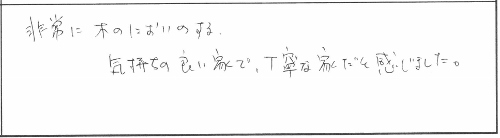 非常に木のにおいのする、
気持ちの良い家で、丁寧な家だと感じました。